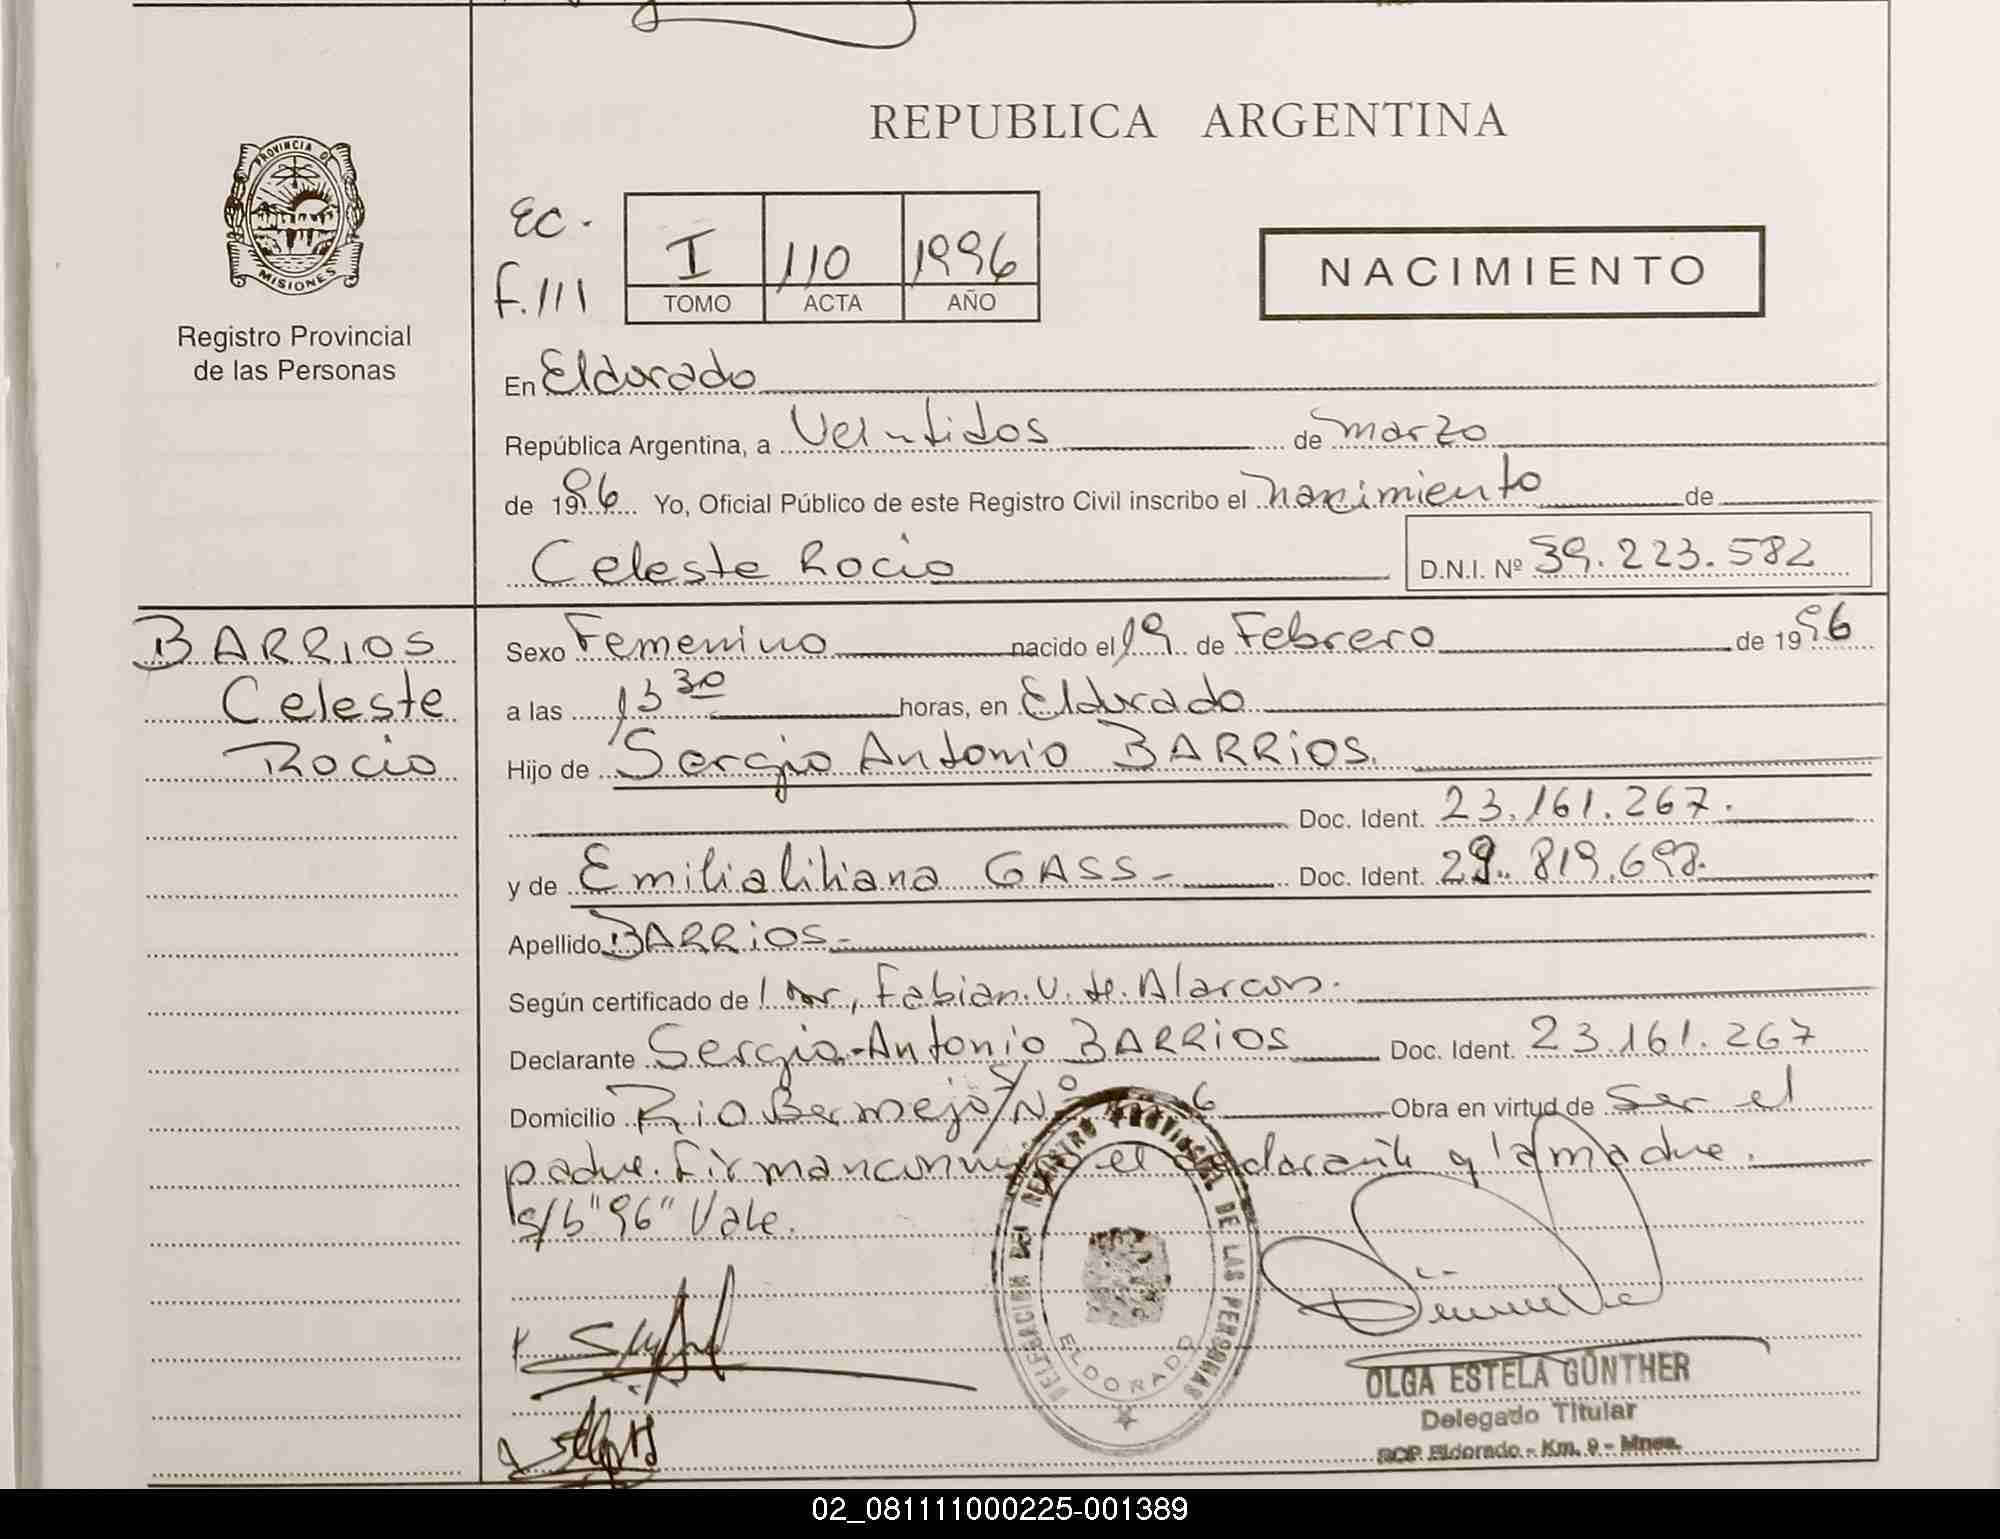 REPUBLICA ARGENTINA
PROVINCIA DE
MISIONES
Registro Provincial
de las Personas
EC.
F. 111
I 110 1996
TOMO ACTA AÑO
NACIMIENTO
En Eldorado
República Argentina, a Veintidos de marzo
de 1996 Yo, Oficial Público de este Registro Civil inscribo el nacimiento de
Celeste Rocio D.N.I. Nº 39.223.582
BARRIOS
Celeste
Rocio
Sexo Femenino nacido el 19 de Febrero de 1996
a las 13 30 horas, en Eldorado
Hijo de Sergio Antonio BARRIOS.
Doc. Ident. 23.161.267.
y de Emilia liliana GASS- Doc. Ident. 29.819.698.
Apellido BARRIOS-
Según certificado de Fabian. V. de. Alarcon.
Declarante Sergio-Antonio BARRIOS Doc. Ident. 23.161.267
Domicilio Rio Bermejo S/Nº 6 Obra en virtud de ser el
padre. Firman conmigo el declarante y la madre.
s/b "96" Vale.
DELEGACION DEL REGISTRO PROVINCIAL DE LAS PERSONAS
ELDORADO
OLGA ESTELA GÜNTHER
Delegado Titular
RCP Eldorado - Km. 9 - Mnes.
02_081111000225-001389